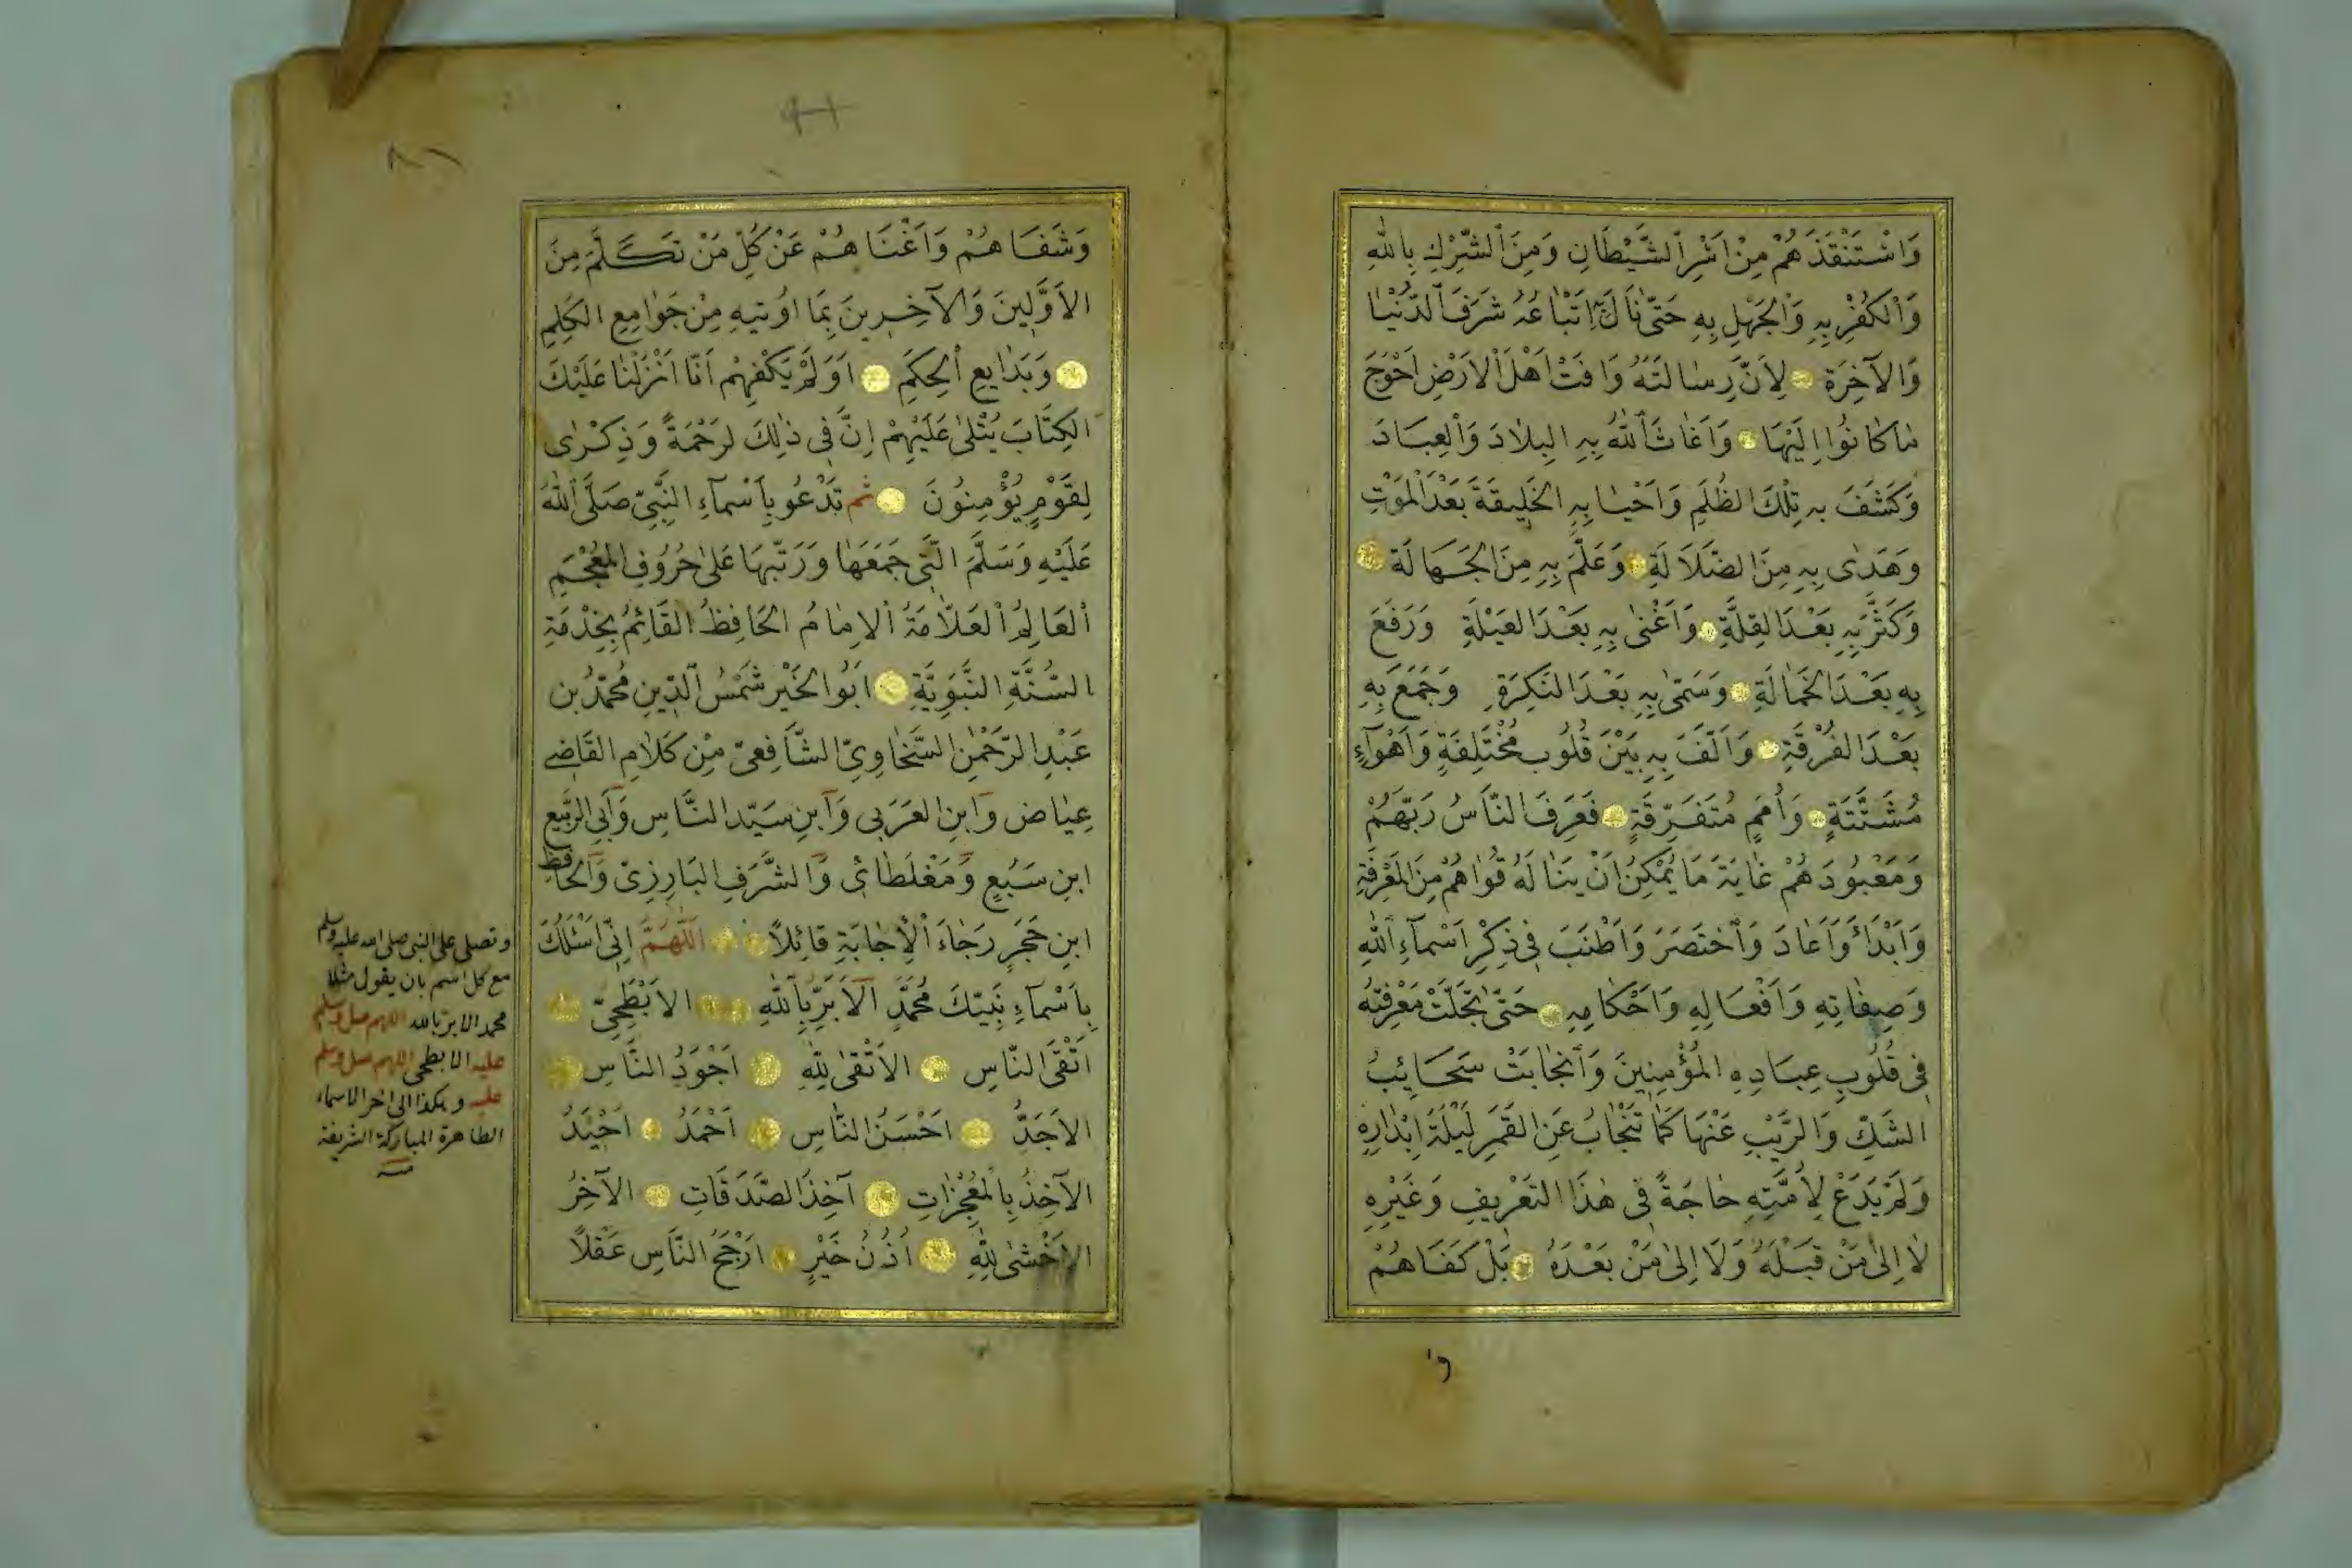 وَاسْتَنْقَذَهُمْ مِنْ اَسْرِ الشَّيْطَانِ وَمِنَ الشِّرْكِ بِاللّٰهِ
وَالْكُفْرِ بِهِ وَالْجَهْلِ بِهِ حَتّٰى نَالَ بِهِ اَتْبَاعُهُ شَرَفَ الدُّنْيَا
وَالآخِرَةِ لِاَنَّ رِسَالَتَهُ وَافَتْ اَهْلَ الْاَرْضِ اَحْوَجَ
مَا كَانُوا اِلَيْهَا وَاَغَاثَ اللّٰهُ بِهِ البِلَادَ وَالْعِبَادَ
وَكَشَفَ بِهِ تِلْكَ الظُّلَمِ وَاَحْيَا بِهِ الخَلِيقَةَ بَعْدَ الْمَوْتِ
وَهَدٰى بِهِ مِنَ الضَّلَالَةِ وَعَلَّمَ بِهِ مِنَ الجَهَالَةِ
وَكَثَّرَ بِهِ بَعْدَ القِلَّةِ وَاَغْنٰى بِهِ بَعْدَ العَيْلَةِ وَرَفَعَ
بِهِ بَعْدَ الخَمَالَةِ وَسَمّٰى بِهِ بَعْدَ النَكِرَةِ وَجَمَعَ بِهِ
بَعْدَ الفُرْقَةِ وَاَلَّفَ بِهِ بَيْنَ قُلُوبٍ مُخْتَلِفَةٍ وَاَهْوَآءٍ
مُشَتَّتَةٍ وَاُمَمٍ مُتَفَرِّقَةٍ فَعَرَفَ النَّاسُ رَبَّهُمْ
وَمَعْبُودَهُمْ غَايَةَ مَا يُمْكِنُ اَنْ يَنَالَهُ قُوَاهُمْ مِنَ المَعْرِفَةِ
وَاَبْدَأَ وَاَعَادَ وَاخْتَصَرَ وَاَطْنَبَ فِي ذِكْرِ اَسْمَآءِ اللّٰهِ
وَصِفَاتِهِ وَاَفْعَالِهِ وَاَحْكَامِهِ حَتّٰى تَجَلَّتْ مَعْرِفَتُهُ
فِي قُلُوبِ عِبَادِهِ المُؤْمِنِينَ وَانْجَابَتْ سَحَائِبُ
الشَكِّ وَالرَّيْبِ عَنْهَا كَمَا تَنْجَابُ عَنِ القَمَرِ لَيْلَةَ اِبْدَارِهِ
وَلَمْ يَدَعْ لِاُمَّتِهِ حَاجَةً فِي هٰذَا التَعْرِيفِ وَغَيْرِهِ
لَا اِلٰى مَنْ قَبْلَهُ وَلَا اِلٰى مَنْ بَعْدَهُ بَلْ كَفَاهُمْ
و
٨١
وَشَفَاهُمْ وَاَغْنَاهُمْ عَنْ كُلِّ مَنْ تَكَلَّمَ مِنَ
الاَوَّلِينَ وَالآخِرِينَ بِمَا اُوتِيهِ مِنْ جَوَامِعِ الكَلِمِ
وَبَدَايِعِ الْحِكَمِ اَوَلَمْ يَكْفِهِمْ اَنَّا اَنْزَلْنَا عَلَيْكَ
الكِتَابَ يُتْلٰى عَلَيْهِمْ اِنَّ فِي ذٰلِكَ لَرَحْمَةً وَذِكْرٰى
لِقَوْمٍ يُؤْمِنُونَ ثم تَدْعُو بِاَسْمَآءِ النَّبِيِّ صَلَّى اللّٰهُ
عَلَيْهِ وَسَلَّمَ الَّتِي جَمَعَهَا وَرَتَّبَهَا عَلٰى حُرُوفِ المُعْجَمِ
اْلعَالِمُ اْلعَلَّامَةُ الاِمَامُ الحَافِظُ القَائِمُ بِخِدْمَةِ
السُّنَّةِ النَّبَوِيَّةِ اَبُو الخَيْرِ شَمْسُ الدِّينِ مُحَمَّدُ بن
عَبْدِ الرَّحْمٰنِ السَّخَاوِيِّ الشَّافِعِيّ مِنْ كَلَامِ القَاضِي
عِيَاض وَابنِ العَرَبي وَابنِ سَيّد النَّاسِ وَاَبِي الرَّبِيعِ
ابنِ سَبُعٍ وَمَغْلَطَائِي وَالشَّرَفِ البَارِزِيّ وَالحَافِظِ
ابنِ حَجَرٍ رَجَاءَ اْلاِجَابَةِ قَائِلًا اَللّٰهُمَّ اِنِّي اَسْئَلُكَ
بِاَسْمَآءِ نَبِيِّكَ مُحَمَّدٍ الاَبَرِّ بِاللّٰهِ الاَبْطَحِيِّ
اَتْقَى النَّاسِ الاَتْقٰى لِلّٰهِ اَجْوَدُ النَّاسِ
الاَجَدُّ اَحْسَنُ النَّاسِ اَحْمَدُ اُحَيْدُ
الآخِذُ بِالْمُعْجِزَاتِ آخِذُ الصَّدَقَاتِ الآخِرُ
الاَخْشٰى لِلّٰهِ اُذُنُ خَيْرٍ اَرْجَحُ النَّاسِ عَقْلًا
وتصلي على النبي صلى الله عليه وسلم
مع كل اسم بان يقول مثلا
محمد الابر بالله اللهم صل وسلم
عليه الابطحي اللهم صل وسلم
عليه وهكذا الى اخر الاسماء
الطاهرة المباركة الشريفة